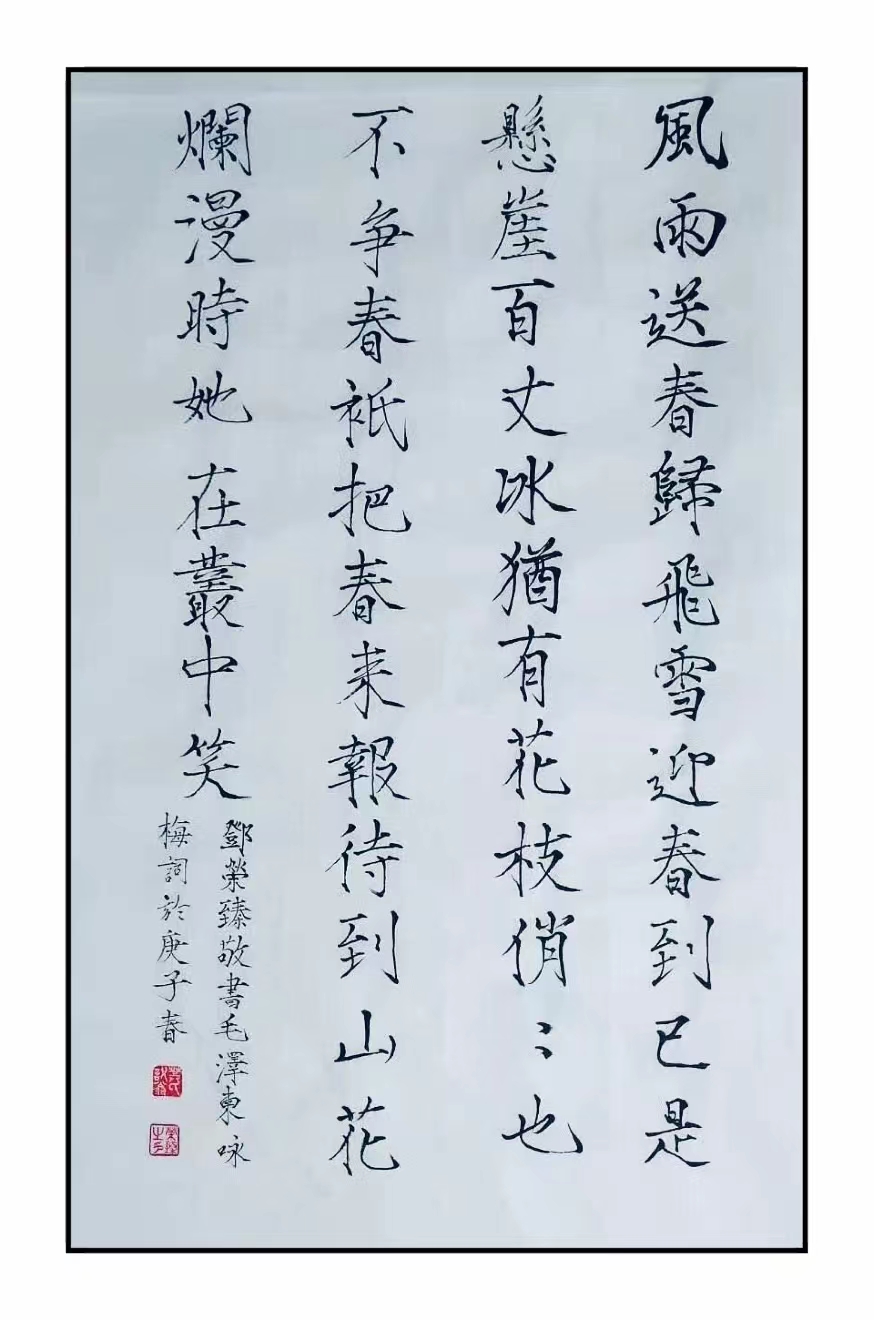 風雨送春歸飛雪迎春到已是
懸崖百丈冰猶有花枝俏〻也
不争春衹把春来報待到山花
爛漫時她在叢中笑
鄧榮臻敬書毛澤東咏
梅詞於庚子春